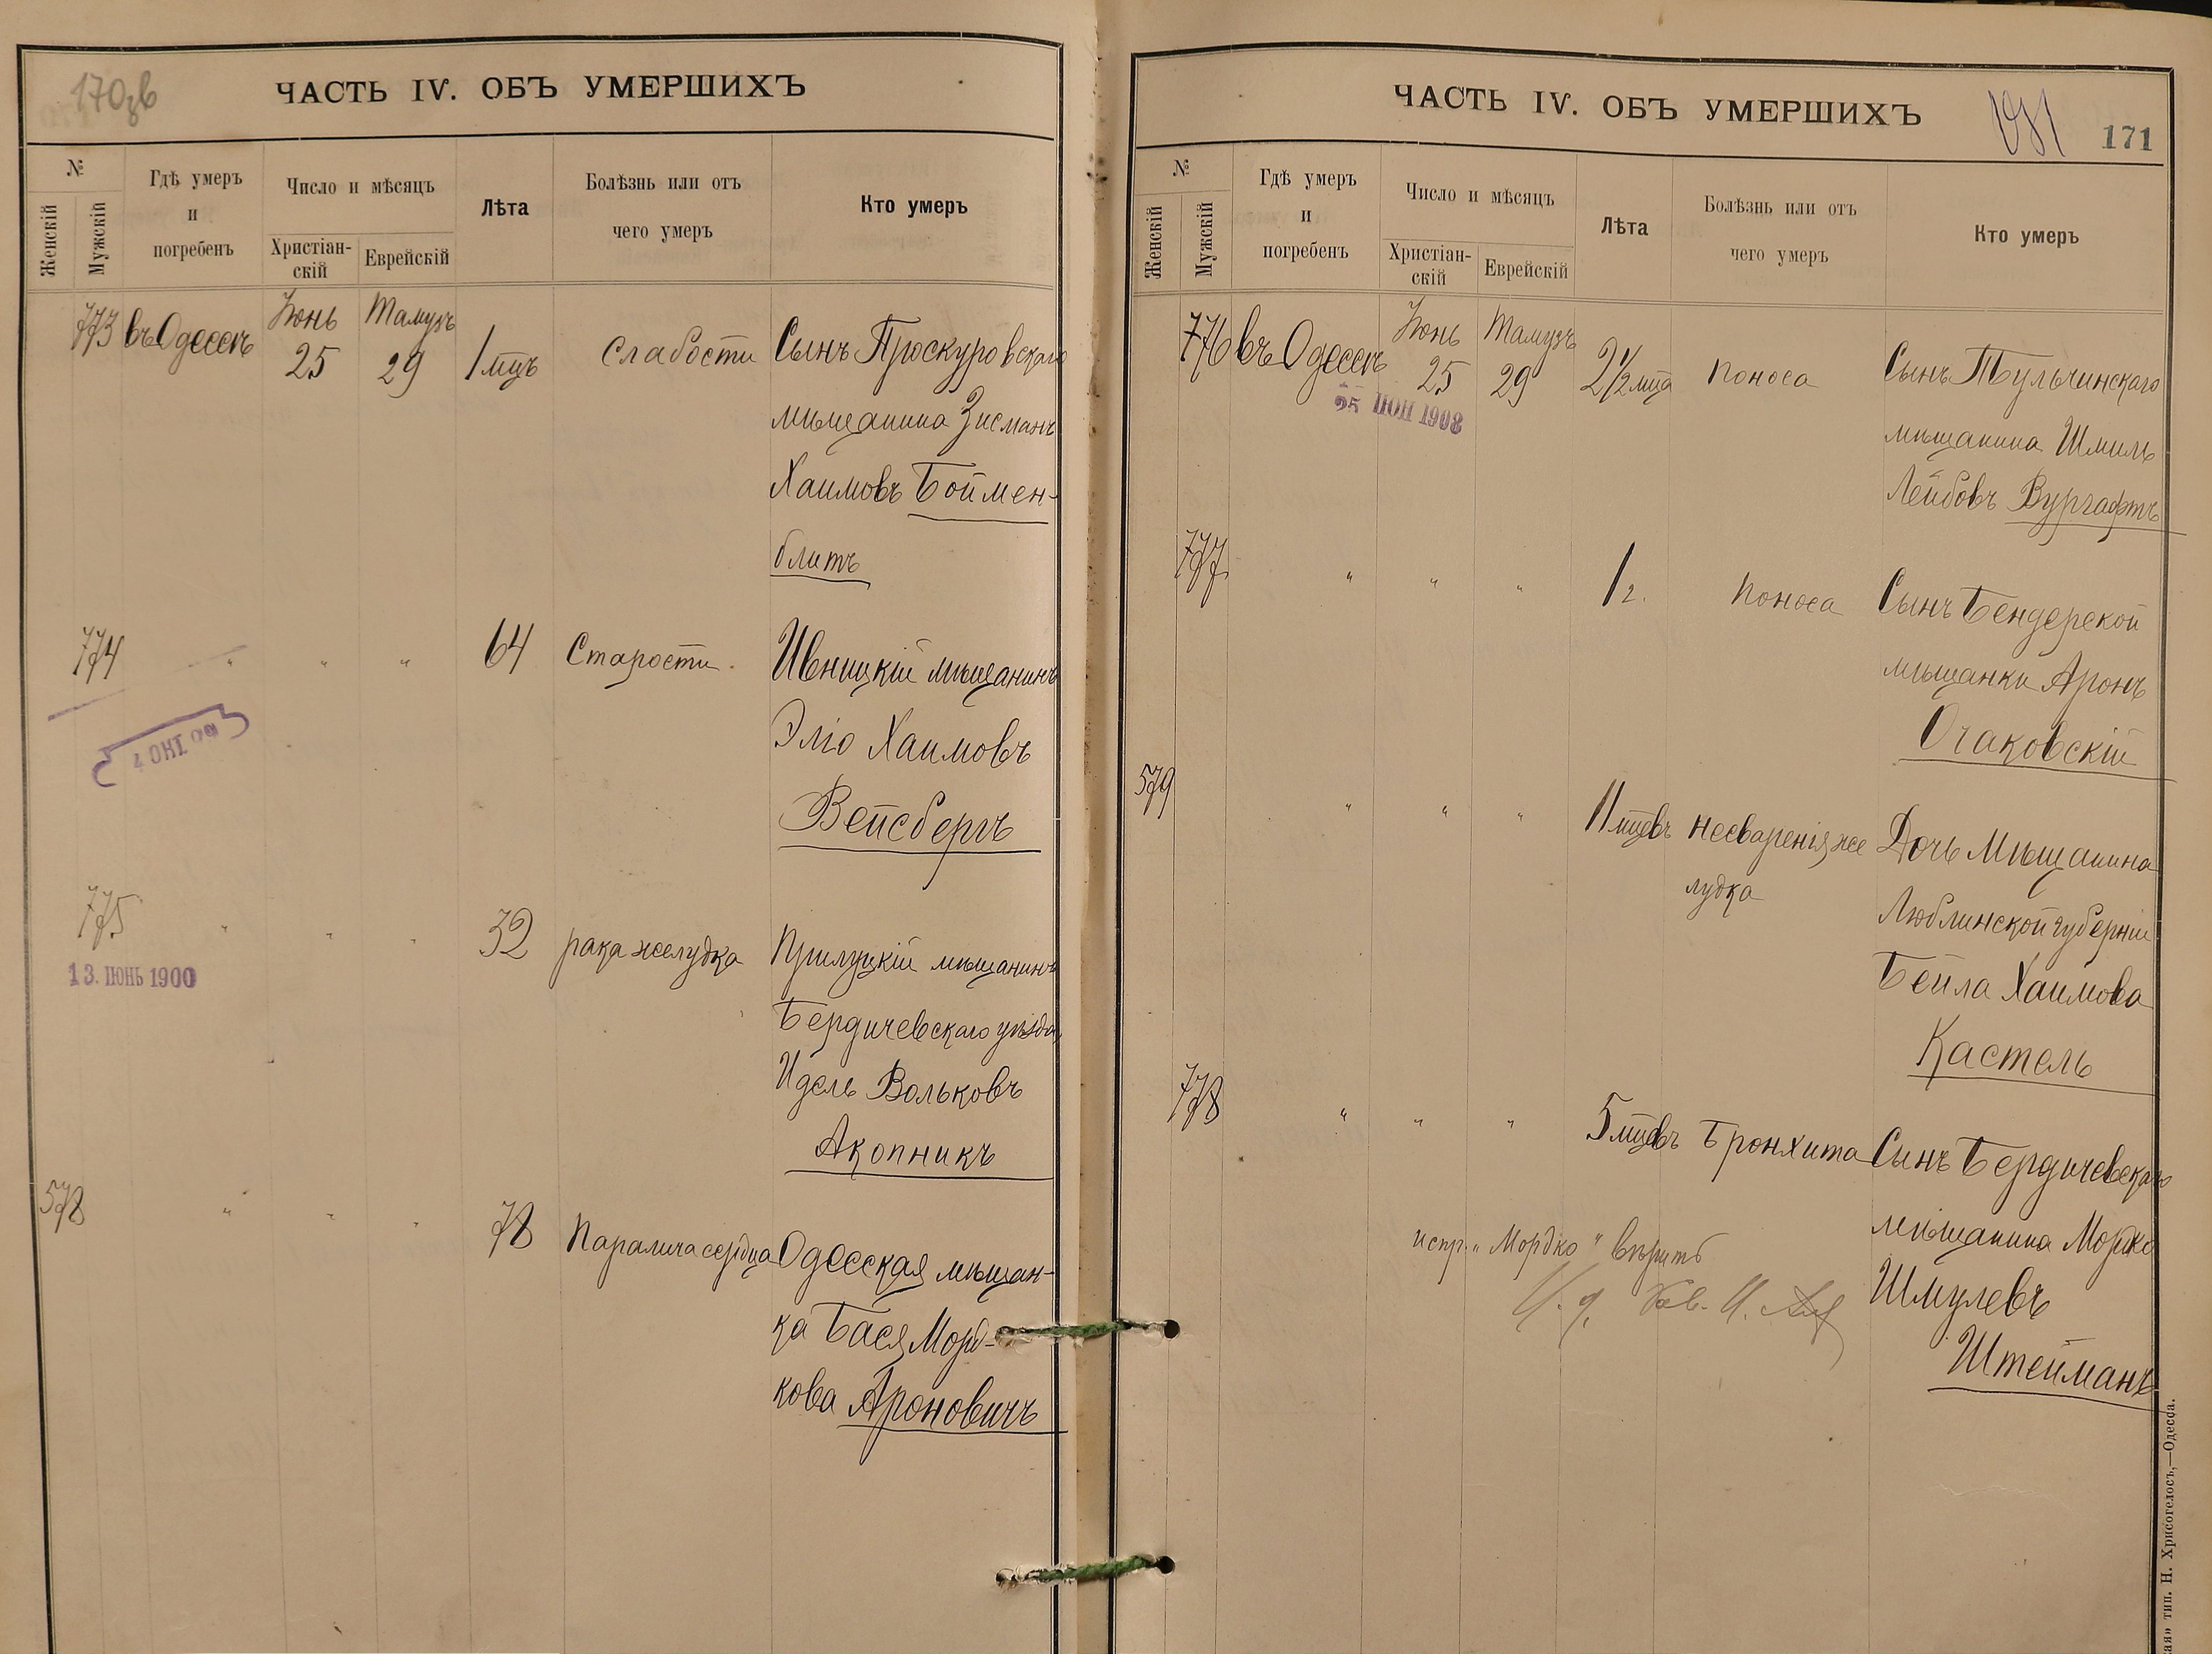 170 об
ЧАСТЬ IV. ОБЪ УМЕРШИХЪ
№
Женскій
Мужскій
Гдѣ умеръ
и
погребенъ
Число и мѣсяцъ
Христіан-
скій
Еврейскій
Лѣта
Болѣзнь или отъ
чего умеръ
Кто умеръ
773 въ Одессѣ Іюнь 25 Тамузъ 29 1 мцъ Слабости Сынъ Проскуровскаго
мѣщанина Зисманъ
Хаимовъ Боймен-
блитъ
774 " " " 64 Старости. Ивницкій мѣщанинъ
Эліо Хаимовъ
Вейсбергъ
775 " " " 32 рака желудка Прилуцкій мѣщанинъ
13. ІЮНЬ 1900
Бердичевскаго уѣзда,
Идель Вольковъ
Акопникъ
578 " " " 78 Паралича сердца Одесская мѣщан-
ка Бася Морд-
кова Ароновичъ
ЧАСТЬ IV. ОБЪ УМЕРШИХЪ
171
№
Женскій
Мужскій
Гдѣ умеръ
и
погребенъ
Число и мѣсяцъ
Христіан-
скій
Еврейскій
Лѣта
Болѣзнь или отъ
чего умеръ
Кто умеръ
776 въ Одессѣ Іюнь 25 Тамузъ 29 2 1/2 мца поноса Сынъ Тульчинскаго
мѣщанина Шмиль
Лейбовъ Вургафтъ
777 " " " 1 г. поноса Сынъ Бендерской
мѣщанки Аронъ
Очаковскій
579 " " " 11 мцевъ несваренія же
лудка
Дочь Мѣщанина
Люблинской губерніи
Бейла Хаимова
Кастель
778 " " " 5 мцевъ Бронхита Сынъ Бердичевскаго
мѣщанина Мордко
Шмулевъ
Штейманъ
испр. „Мордко" вѣрить
тип. Н. Хрисогелосъ,—Одесса.